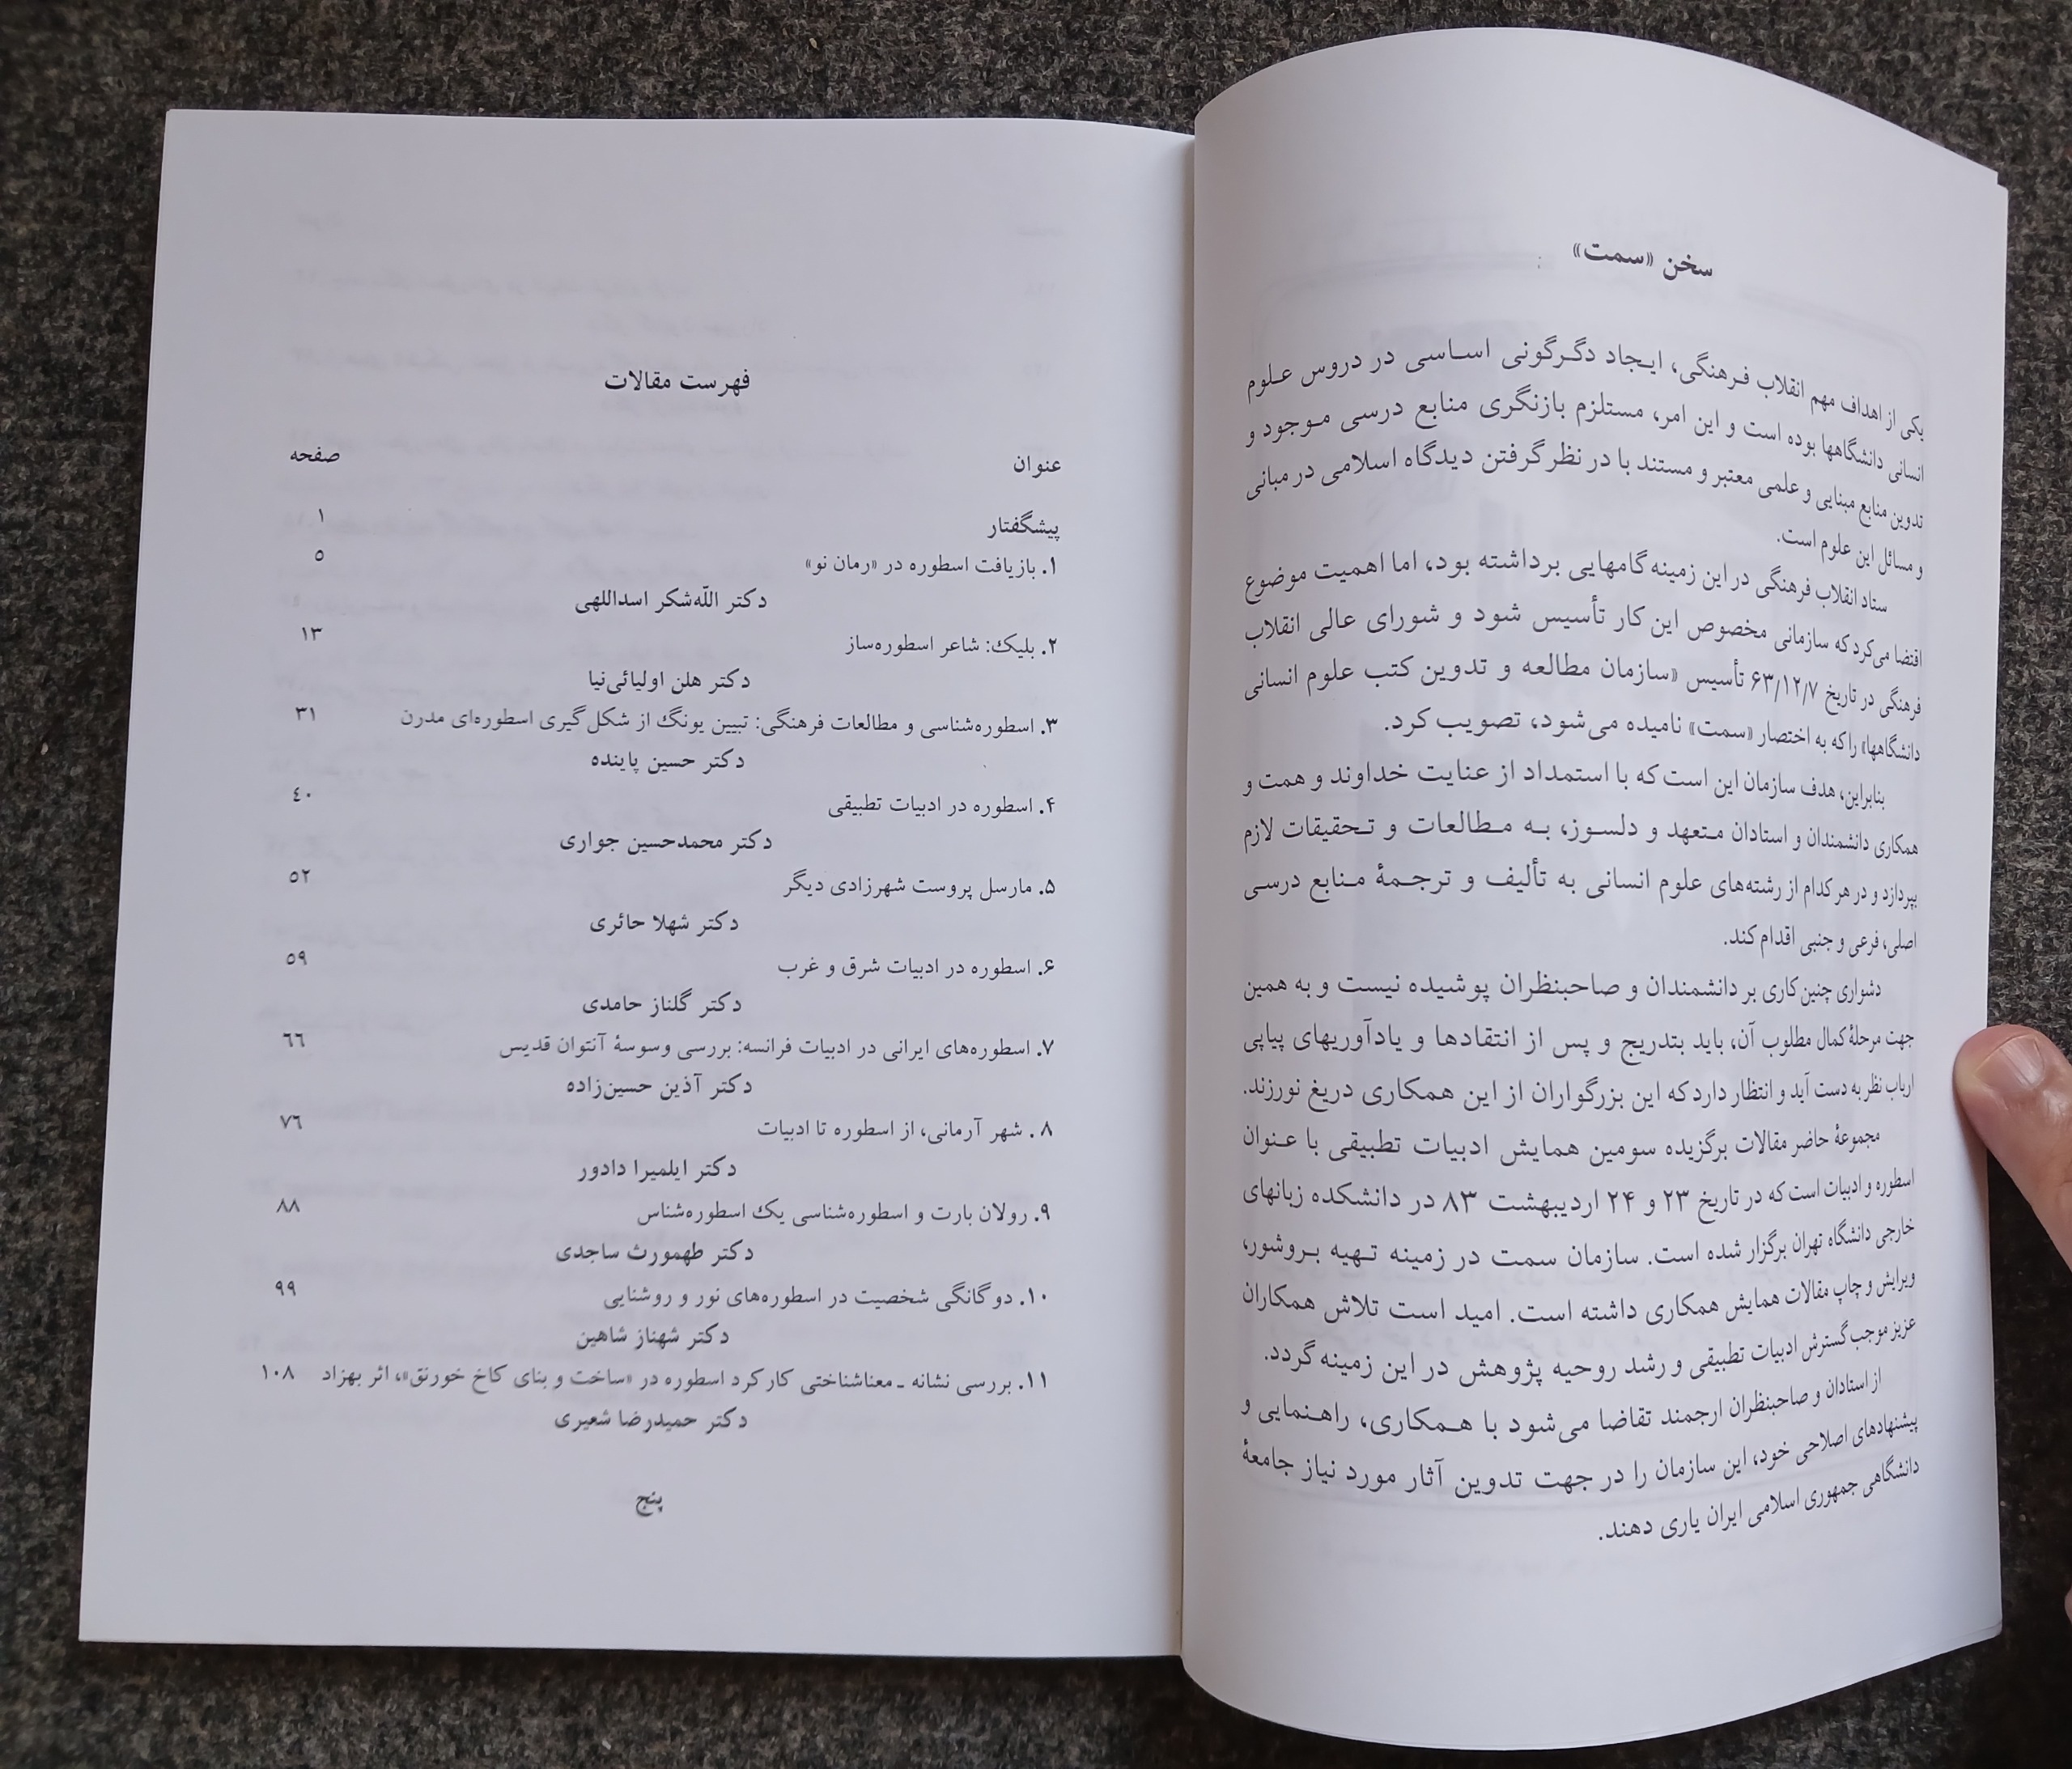 سخن «سمت»
یکی از اهداف مهم انقلاب فرهنگی، ایجاد دگرگونی اساسی در دروس علوم
انسانی دانشگاهها بوده است و این امر، مستلزم بازنگری منابع درسی موجود و
تدوین منابع مبنایی و علمی معتبر و مستند با در نظر گرفتن دیدگاه اسلامی در مبانی
و مسائل این علوم است.
ستاد انقلاب فرهنگی در این زمینه گامهایی برداشته بود، اما اهمیت موضوع
اقتضا می‌کرد که سازمانی مخصوص این کار تأسیس شود و شورای عالی انقلاب
فرهنگی در تاریخ ۶۳/۱۲/۷ تأسیس «سازمان مطالعه و تدوین کتب علوم انسانی
دانشگاهها» را که به اختصار «سمت» نامیده می‌شود، تصویب کرد.
بنابراین، هدف سازمان این است که با استمداد از عنایت خداوند و همت و
همکاری دانشمندان و استادان متعهد و دلسوز، به مطالعات و تحقیقات لازم
بپردازد و در هر کدام از رشته‌های علوم انسانی به تألیف و ترجمهٔ منابع درسی
اصلی، فرعی و جنبی اقدام کند.
دشواری چنین کاری بر دانشمندان و صاحبنظران پوشیده نیست و به همین
جهت مرحلهٔ کمال مطلوب آن، باید بتدریج و پس از انتقادها و یادآوریهای پیاپی
ارباب نظر به دست آید و انتظار دارد که این بزرگواران از این همکاری دریغ نورزند.
مجموعهٔ حاضر مقالات برگزیده سومین همایش ادبیات تطبیقی با عنوان
اسطوره و ادبیات است که در تاریخ ۲۳ و ۲۴ اردیبهشت ۸۳ در دانشکده زبانهای
خارجی دانشگاه تهران برگزار شده است. سازمان سمت در زمینه تهیه بروشور،
ویرایش و چاپ مقالات همایش همکاری داشته است. امید است تلاش همکاران
عزیز موجب گسترش ادبیات تطبیقی و رشد روحیه پژوهش در این زمینه گردد.
از استادان و صاحبنظران ارجمند تقاضا می‌شود با همکاری، راهنمایی و
پیشنهادهای اصلاحی خود، این سازمان را در جهت تدوین آثار مورد نیاز جامعهٔ
دانشگاهی جمهوری اسلامی ایران یاری دهند.
فهرست مقالات
عنوان صفحه
پیشگفتار ۱
۱. بازیافت اسطوره در «رمان نو» ۵
دکتر اللّه‌شکر اسداللهی
۲. بلیک: شاعر اسطوره‌ساز ۱۳
دکتر هلن اولیائی‌نیا
۳. اسطوره‌شناسی و مطالعات فرهنگی: تبیین یونگ از شکل‌گیری اسطوره‌ای مدرن ۳۱
دکتر حسین پاینده
۴. اسطوره در ادبیات تطبیقی ٤۰
دکتر محمدحسین جواری
۵. مارسل پروست شهرزادی دیگر ۵۲
دکتر شهلا حائری
۶. اسطوره در ادبیات شرق و غرب ۵۹
دکتر گلناز حامدی
۷. اسطوره‌های ایرانی در ادبیات فرانسه: بررسی وسوسهٔ آنتوان قدیس ٦٦
دکتر آذین حسین‌زاده
۸. شهر آرمانی، از اسطوره تا ادبیات ۷٦
دکتر ایلمیرا دادور
۹. رولان بارت و اسطوره‌شناسی یک اسطوره‌شناس ۸۸
دکتر طهمورث ساجدی
۱۰. دوگانگی شخصیت در اسطوره‌های نور و روشنایی ۹۹
دکتر شهناز شاهین
۱۱. بررسی نشانه ـ معناشناختی کارکرد اسطوره در «ساخت و بنای کاخ خورنق»، اثر بهزاد ۱۰۸
دکتر حمیدرضا شعیری
پنج